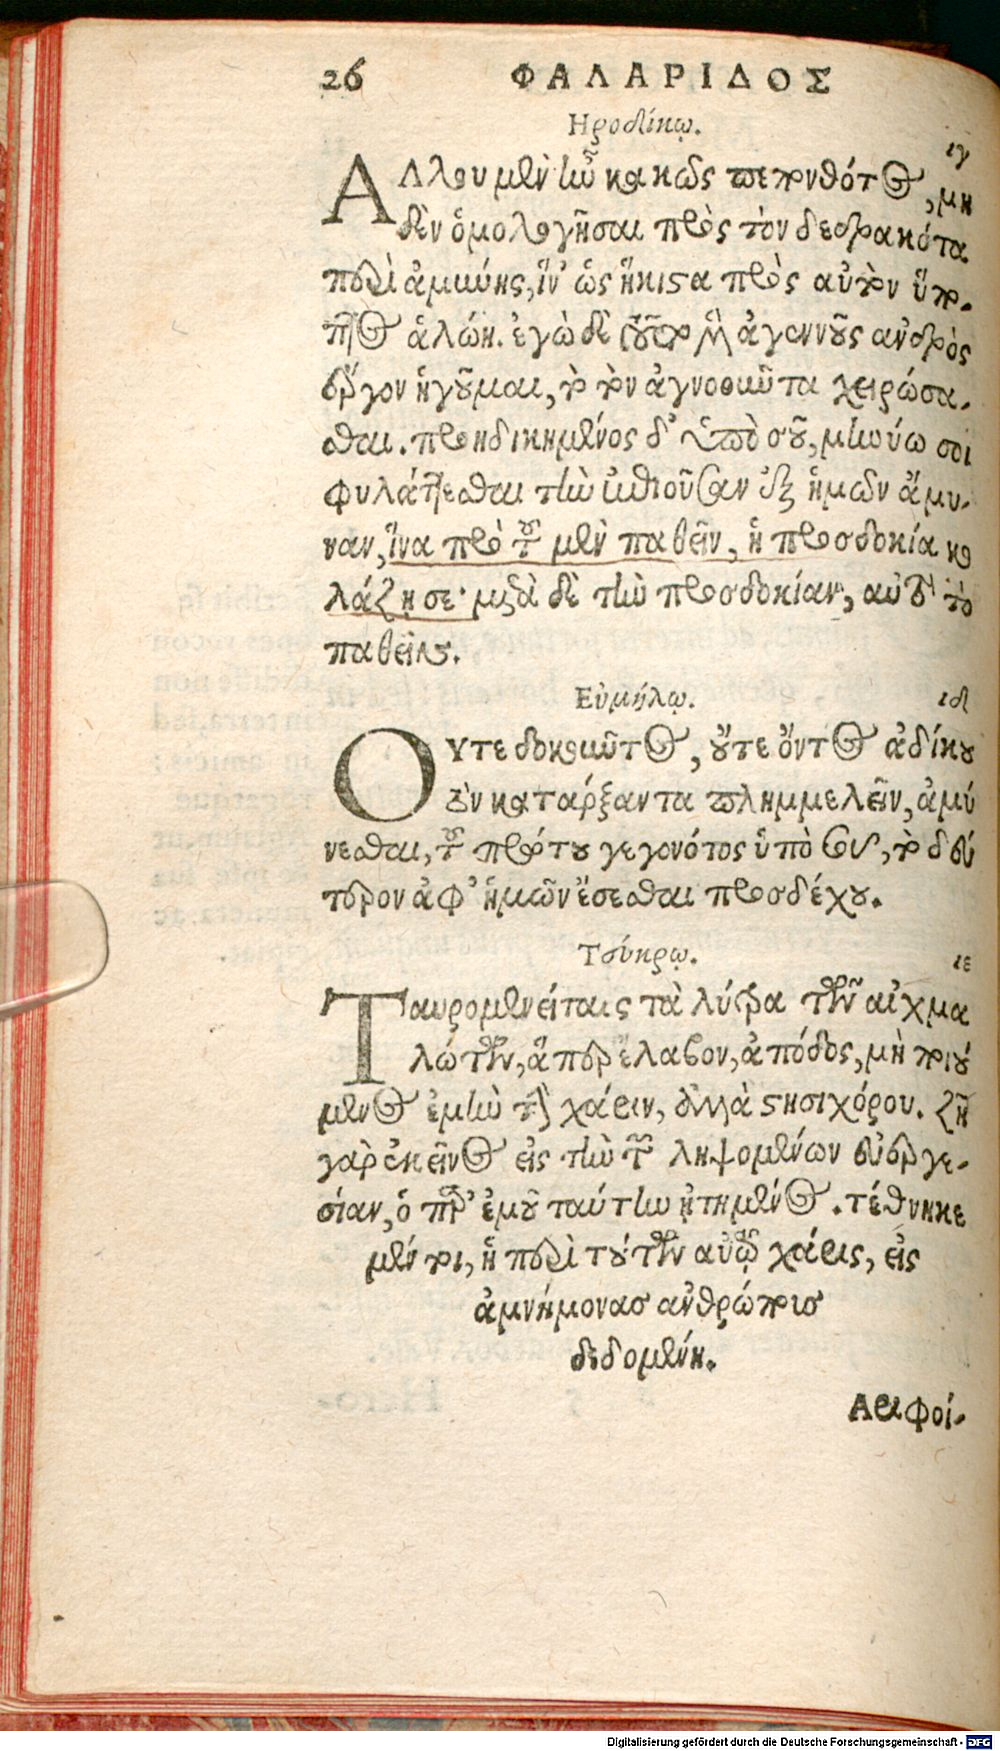 26 ΦΑΛΑΡΙΔΟΣ
Ηροδίκῳ. ιγ
ΑΛλου μὲν ἦν κακῶς πεπονθότος, μη
δὲν ὁμολογῆσαι πρὸς τὸν δεδρακότα
περὶ ἀμύνης, ἵν᾽ ὡς ἥκιστα πρὸς αὐτὸν ὕπο-
πτος ἁλώη. ἐγὼ δὲ τοῦτο μὲν ἀγεννοῦς ἀνδρὸς
ἔργον ἡγοῦμαι, τὸ τὸν ἀγνοοῦντα χειρώσα-
σθαι. προηδικημένος δ᾽ ὑπὸ σοῦ, μηνύω σοι
φυλάττεσθαι τὴν ἐπιοῦσαν ἐξ ἡμῶν ἄμυ-
ναν, ἵνα πρὸ τοῦ μὲν παθεῖν, ἡ προσδοκία κο
λάζῃ σε· μετὰ δὲ τὴν προσδοκίαν, αὐτὸ τὸ
παθεῖν.
Εὐμήλῳ. ιδ
ΟΥτε δοκοῦντος, οὔτε ὄντος ἀδίκου
τὸν κατάρξαντα πλημμελεῖν, ἀμύ
νεσθαι, τοῦ πρώτου γεγονότος ὑπὸ σοῦ, τὸ δεύ
τερον ἀφ᾽ ἡμῶν ἔσεσθαι προσδέχου.
Τεύκρῳ. ιε
Ταυρομενείταις τὰ λύτρα τῶν αἰχμα
λώτων, ἃ παρέλαβον, ἀπόδος, μὴ ποιού
μενος ἐμὴν τὴν χάριν, ἀλλὰ στησιχόρου. ζῆ
γὰρ ἐκεῖνος εἰς τὴν τῶν ληψομένων εὐεργε-
σίαν, ὁ παρ᾽ ἐμοῦ ταύτην ᾐτημένος. τέθνηκε
μέν τοι, ἡ περὶ τούτων αὐτῷ χάρις, εἰς
ἀμνήμονας ἀνθρώποις
δεδομένη.
Αριφοί-
Digitalisierung gefördert durch die Deutsche Forschungsgemeinschaft - DFG